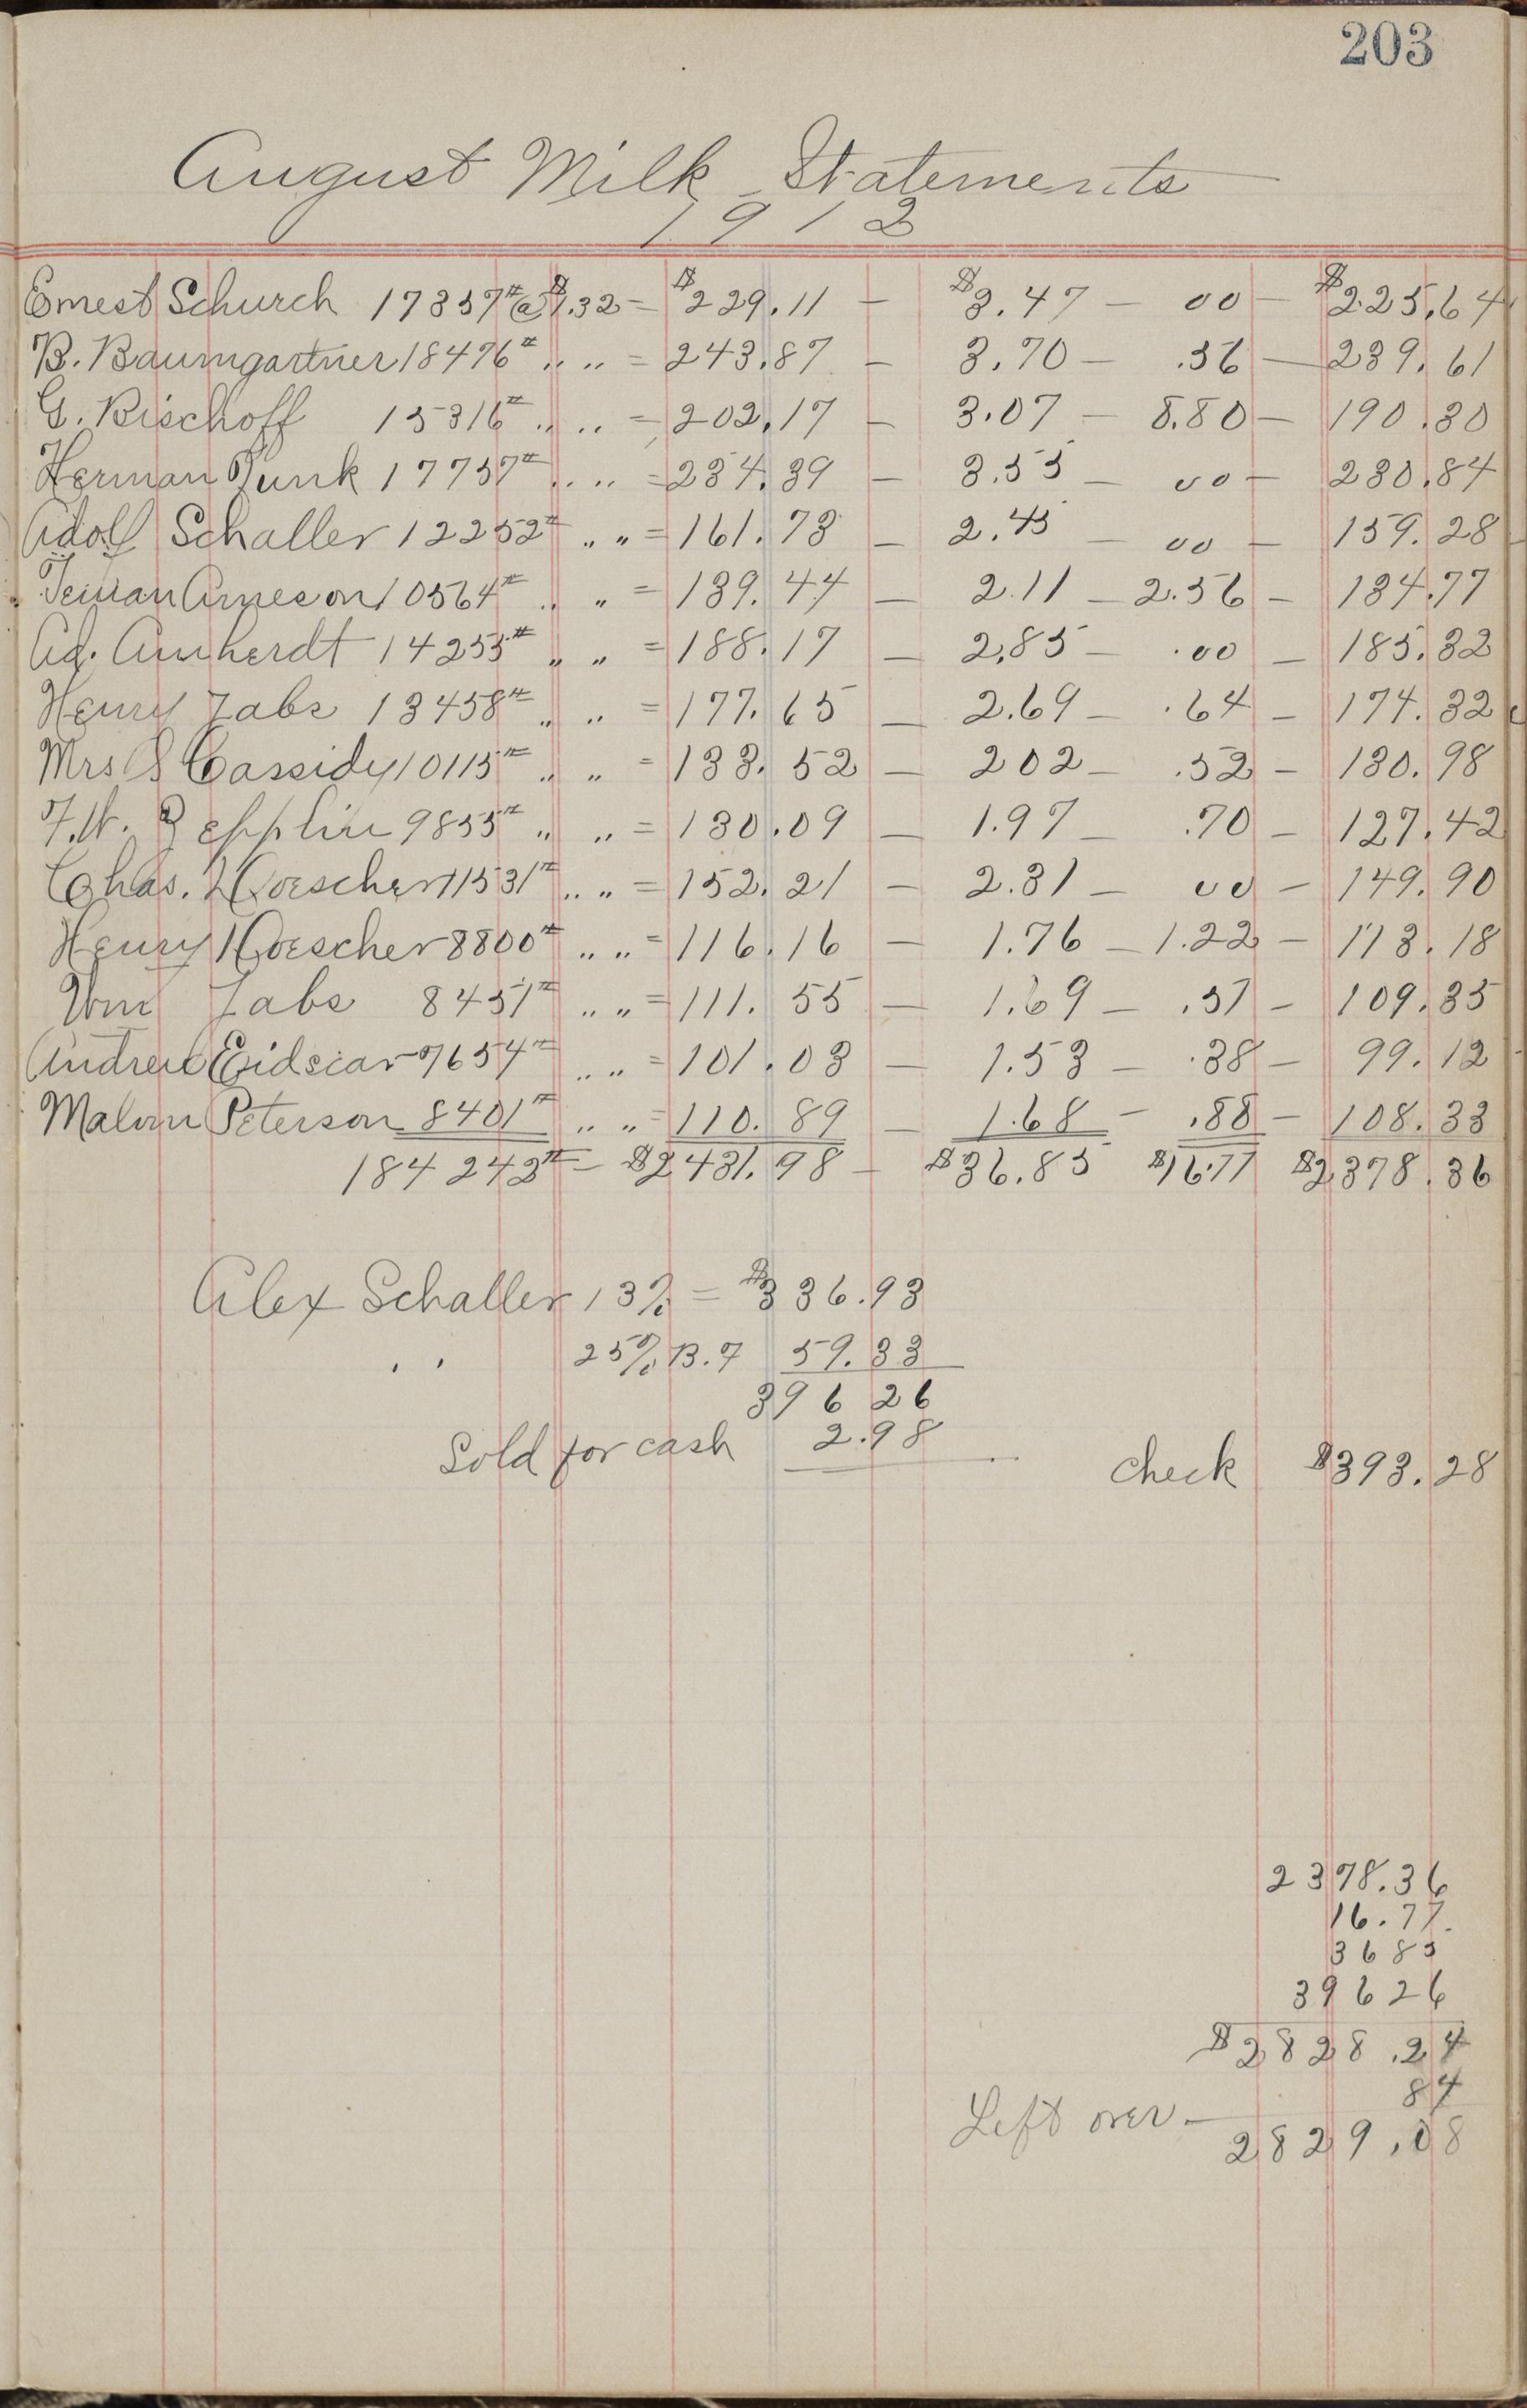 203
August Milk Statements
1912
Ernest Schurch 17357# @ $1.32 = $229.11 — $3.47 — 00 — $225.64
B. Baumgartner 18476# .. .. = 243.87 — 3.70 — .56 — 239.61
G. Bischoff 15316# .. .. = 202.17 — 3.07 — 8.80 — 190.30
Herman Punk 17757# .. .. = 234.39 — 3.55 — 00 — 230.84
Adolf Schaller 12252# „ „ = 161.73 — 2.45 — 00 — 159.28
Arneson 10564# .. „ = 139.44 — 2.11 — 2.56 — 134.77
Ad. Amherdt 14255# „ „ = 188.17 — 2.85 — .00 — 185.32
Henry Zabs 13458# „ .. = 177.65 — 2.69 — .64 — 174.32
Mrs S Cassidy 10115# .. „ = 133.52 — 202 — .52 — 130.98
F.W. Zepplin 9855# „ „ = 130.09 — 1.97 — .70 — 127.42
Chas. Hoescher 11531# .. „ = 152.21 — 2.31 — 00 — 149.90
Henry Hoescher 8800# .. „ = 116.16 — 1.76 — 1.22 — 113.18
Wm Zabs 8451# .. „ = 111.55 — 1.69 — .51 — 109.35
Andrew Eidscar 7654# .. „ = 101.03 — 1.53 — .38 — 99.12
Malvin Peterson 8401# .. „ = 110.89 — 1.68 — .88 — 108.33
184242# — $2431.98 — $36.85 $16.77 $2378.36
Alex Schaller 13% = $336.93
. . 25% B.F 59.33
396 26
Sold for cash 2.98
check $393.28
2378.36
16.77
3685
39626
$2828.24
84
Left over — 2829.08